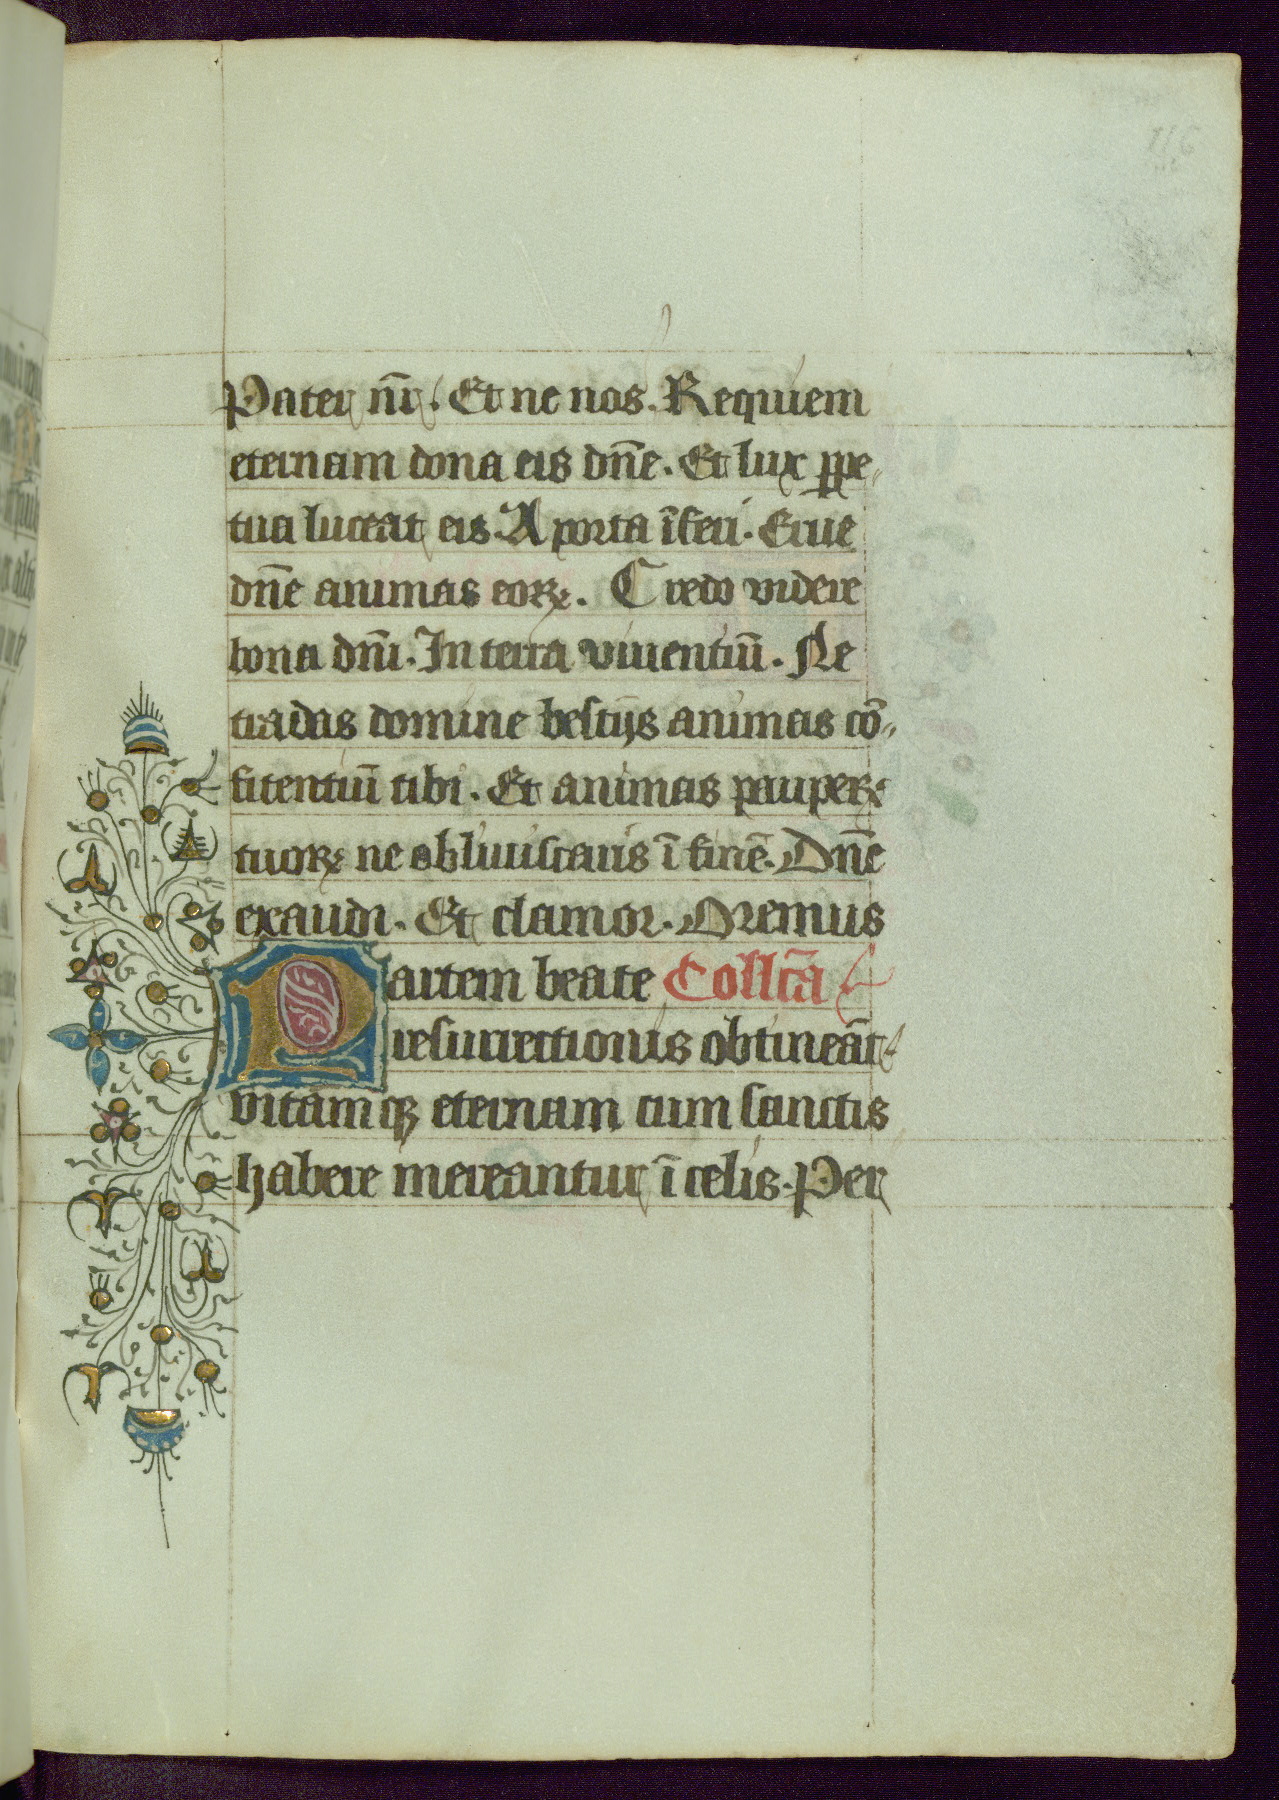 116
Pater nr̄. Et ne nos. Requiem
eternam dona eis dn̄e. Et lux ꝑpe
tua luceat eis. A porta īferi. Erue
dn̄e animas eoꝝ. Credo videre
bona dn̄i. In terra viuentiū. Ne
tradas domine bestijs animas cō
fitentiū tibi. Et animas pauperꝝ
tuoꝝ ne obliuiscaris ī finē. Dn̄e
exaudi. Et clamor. Oremus
Partem beate Collc̄a
resurrectionis obtineāt
vitamqꝫ eternam cum sanctis
habere mereantur ī celis. Per